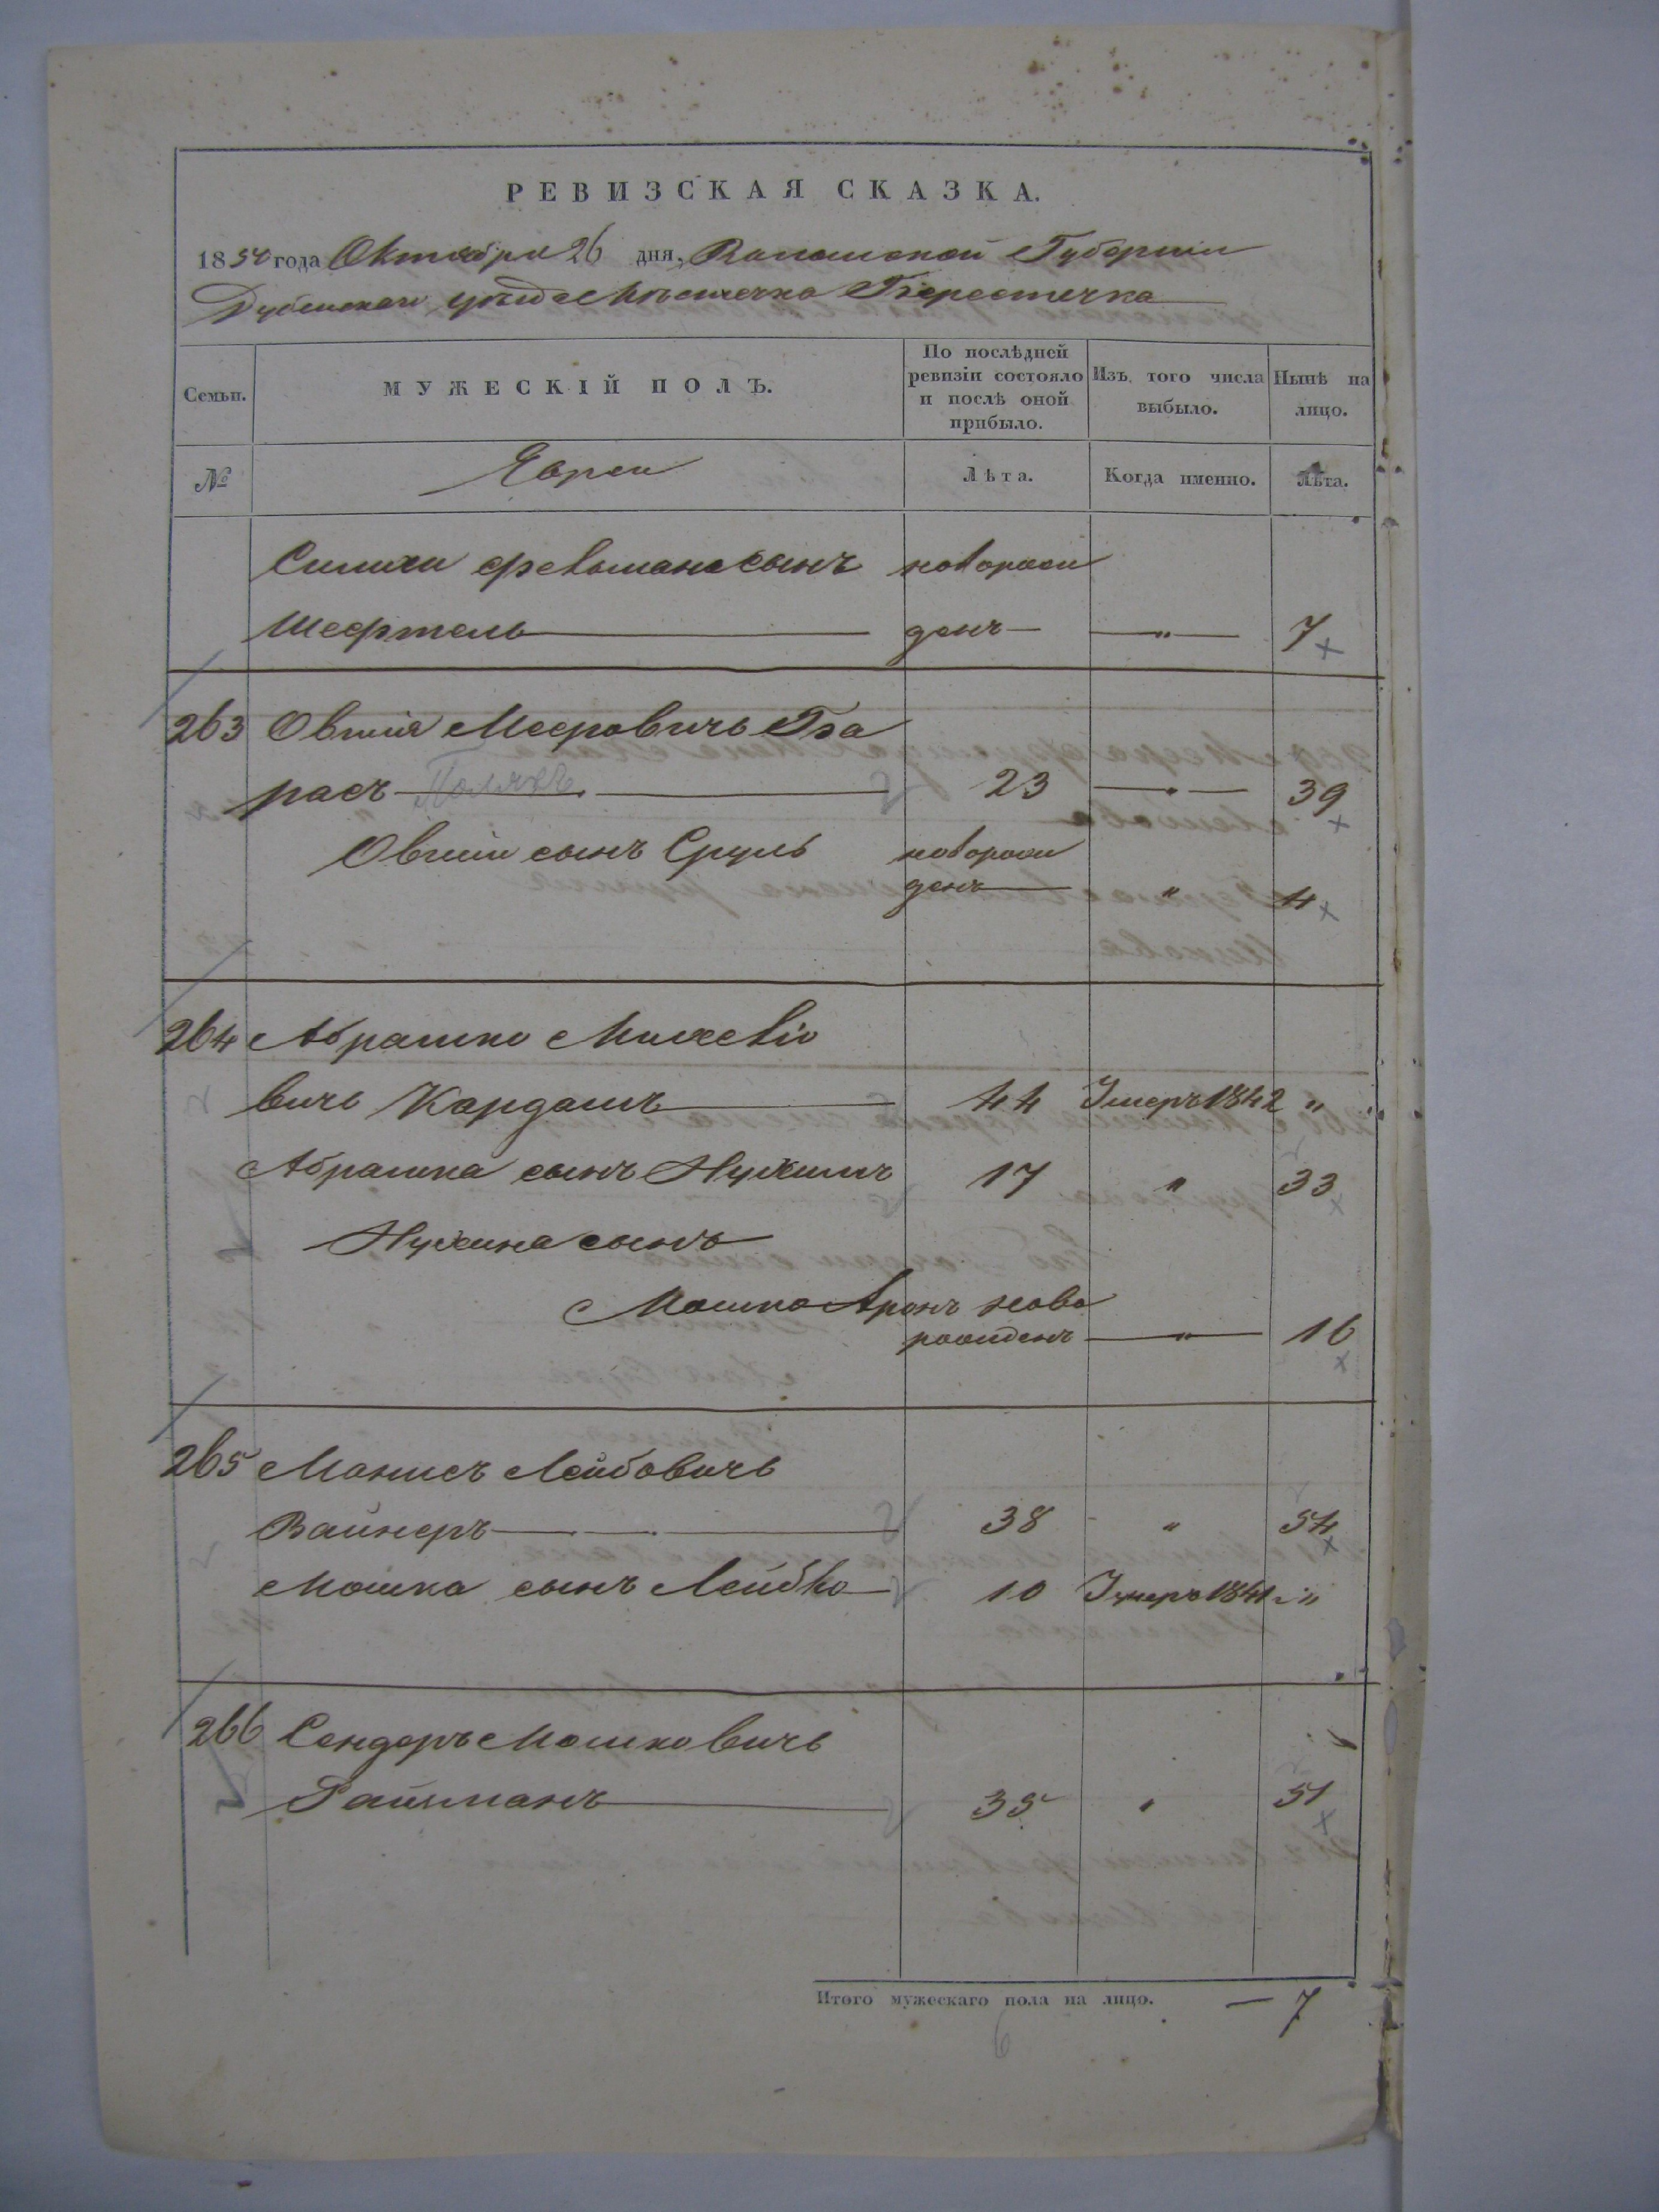 РЕВИЗСКАЯ СКАЗКА.
1850 года Октября 26 дня, Волынской Губернии
Дубенскаго уѣзда Мѣстечка Берестечка
Семьи.
МУЖЕСКІЙ ПОЛЪ.
По послѣдней ревизіи состояло и послѣ оной прибыло.
Изъ того числа выбыло.
Нынѣ на лицо.
№ Евреи Лѣта. Когда именно. Лѣта.
сынъ новорож
Шефтель денъ — " — 7
263 Овшія Мееровичъ Ба
расъ Полякъ 23 — " — 39
Овшіи сынъ Сруль новорож
денъ " 4
264 Абрашко
вичъ Кардашъ 44 Умеръ 1842 "
Абрашка сынъ Нухимъ 17 " 33
Нухима сынъ
Мошко Аронъ ново
рожденъ — " — 16
265 Манисъ Лейбовичъ
Вайнеръ 38 " 54
Мошка сынъ Лейбко 10 Умеръ 1841 г "
266 Сендеръ Мошковичъ
Райзманъ 35 " 51
Итого мужескаго пола на лицо. — 7
6